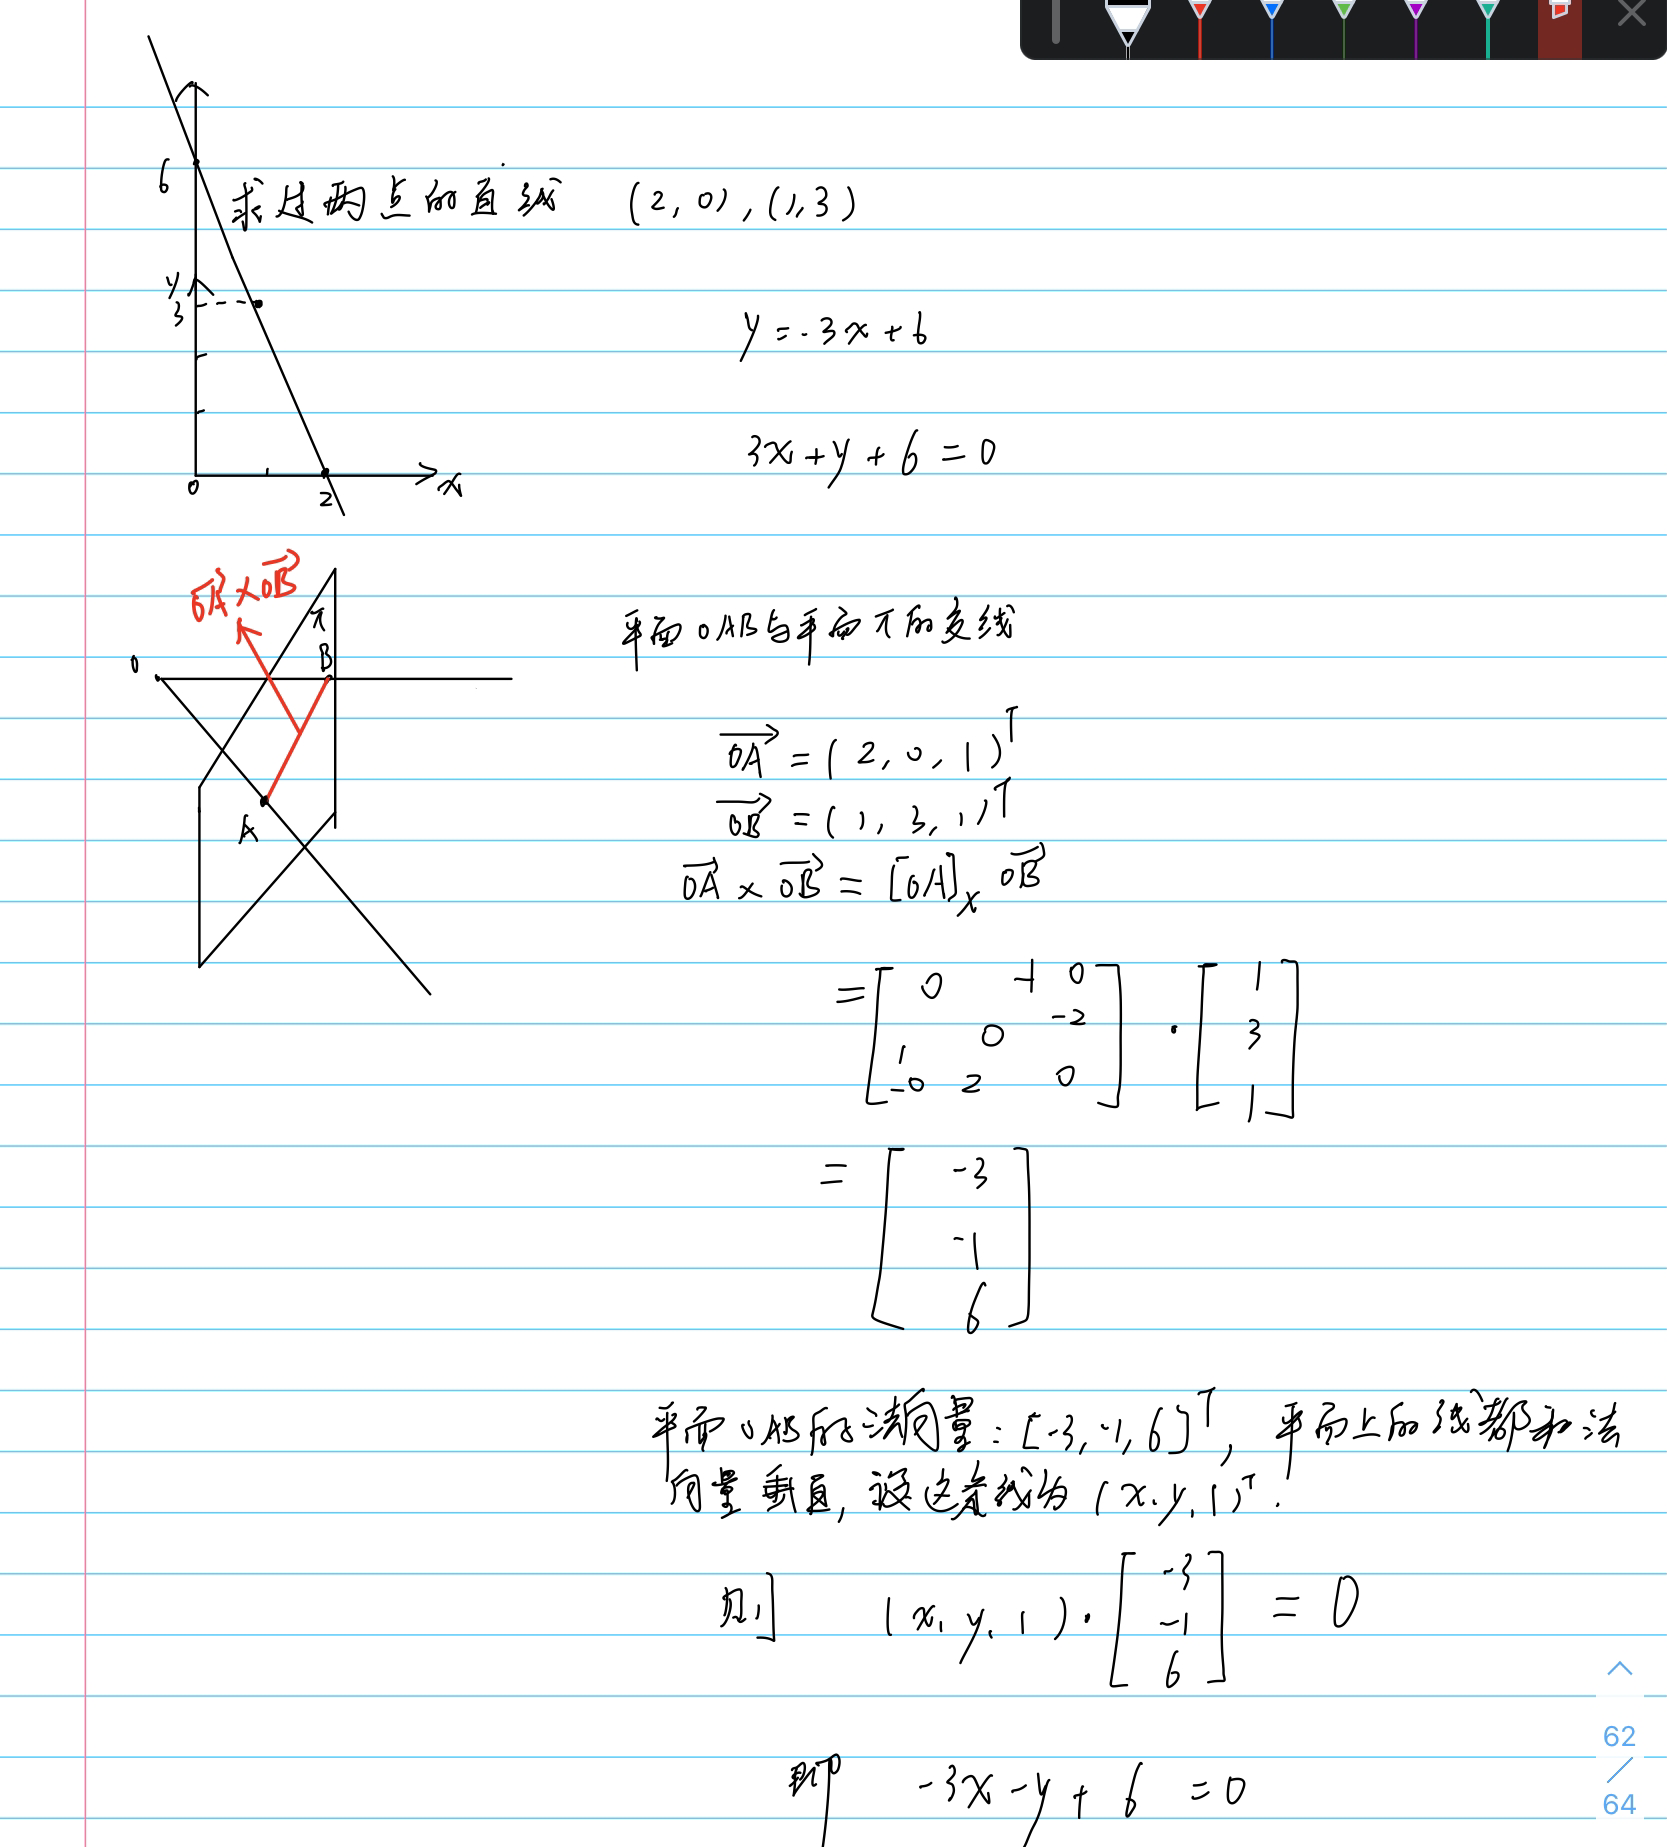 6
求过两点的直线 (2,0),(1,3)
y
3
y=-3x+6
3x+y+6=0
0
2
x
OA×OB
π
平面OAB与平面π的交线
0
B
OA=(2,0,1)^T
OB=(1,3,1)^T
A
OA×OB=[OA]_x OB
=[0 -1 0
-2
0
1
-0 2 0] · [1
3
1]
=[-3
-1
6]
平面OAB的法向量:[-3,-1,6]^T, 平面上的线都和法
向量垂直,设这条线为(x,y,1)^T.
则 (x,y,1)·[-3
-1
6] =0
即 -3x-y+6=0
62
/
64